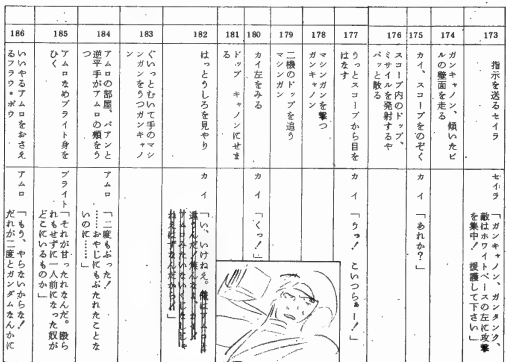 173
指示を送るセイラ
セイラ
「ガンキャノン、ガンタンク、
敵はホワイトベースの左に攻撃
を集中! 援護して下さい」
174
ガンキャノン、傾いたビ
ルの壁面を走る
175
カイ、スコープをのぞく
カイ
「あれか?」
176
スコープ内のドップ、
ミサイルを発射するや
パッと散る
177
うっとスコープから目を
はなす
カイ
「うっ! こいつらぁー!」
178
マシンガンを撃つ
ガンキャノン
179
二機のドップを追う
マシンガン
180
カイ左をみる
カイ
「くっ!」
181
ドップ キャノンにせま
る
182
はっとうしろを見やり
カイ
「い、いけねえ。俺は
183
ぐいっとむいて手のマシ
ンガンをうつガンキャノ
ン
184
アムロの部屋、パァンと
逆平手がアムロの頬をう
つ
アムロ
「二度もぶった!
……おやじにもぶたれたことな
いのに……」
185
アムロなめブライト身を
ひく
ブライト
「それが甘ったれなんだ。殴ら
れもせずに一人前になった奴が
どこにいるものか」
186
いいやるアムロをおさえ
るフラウ・ボウ
アムロ
「もう、やらないからな!
だれが二度とガンダムなんかに